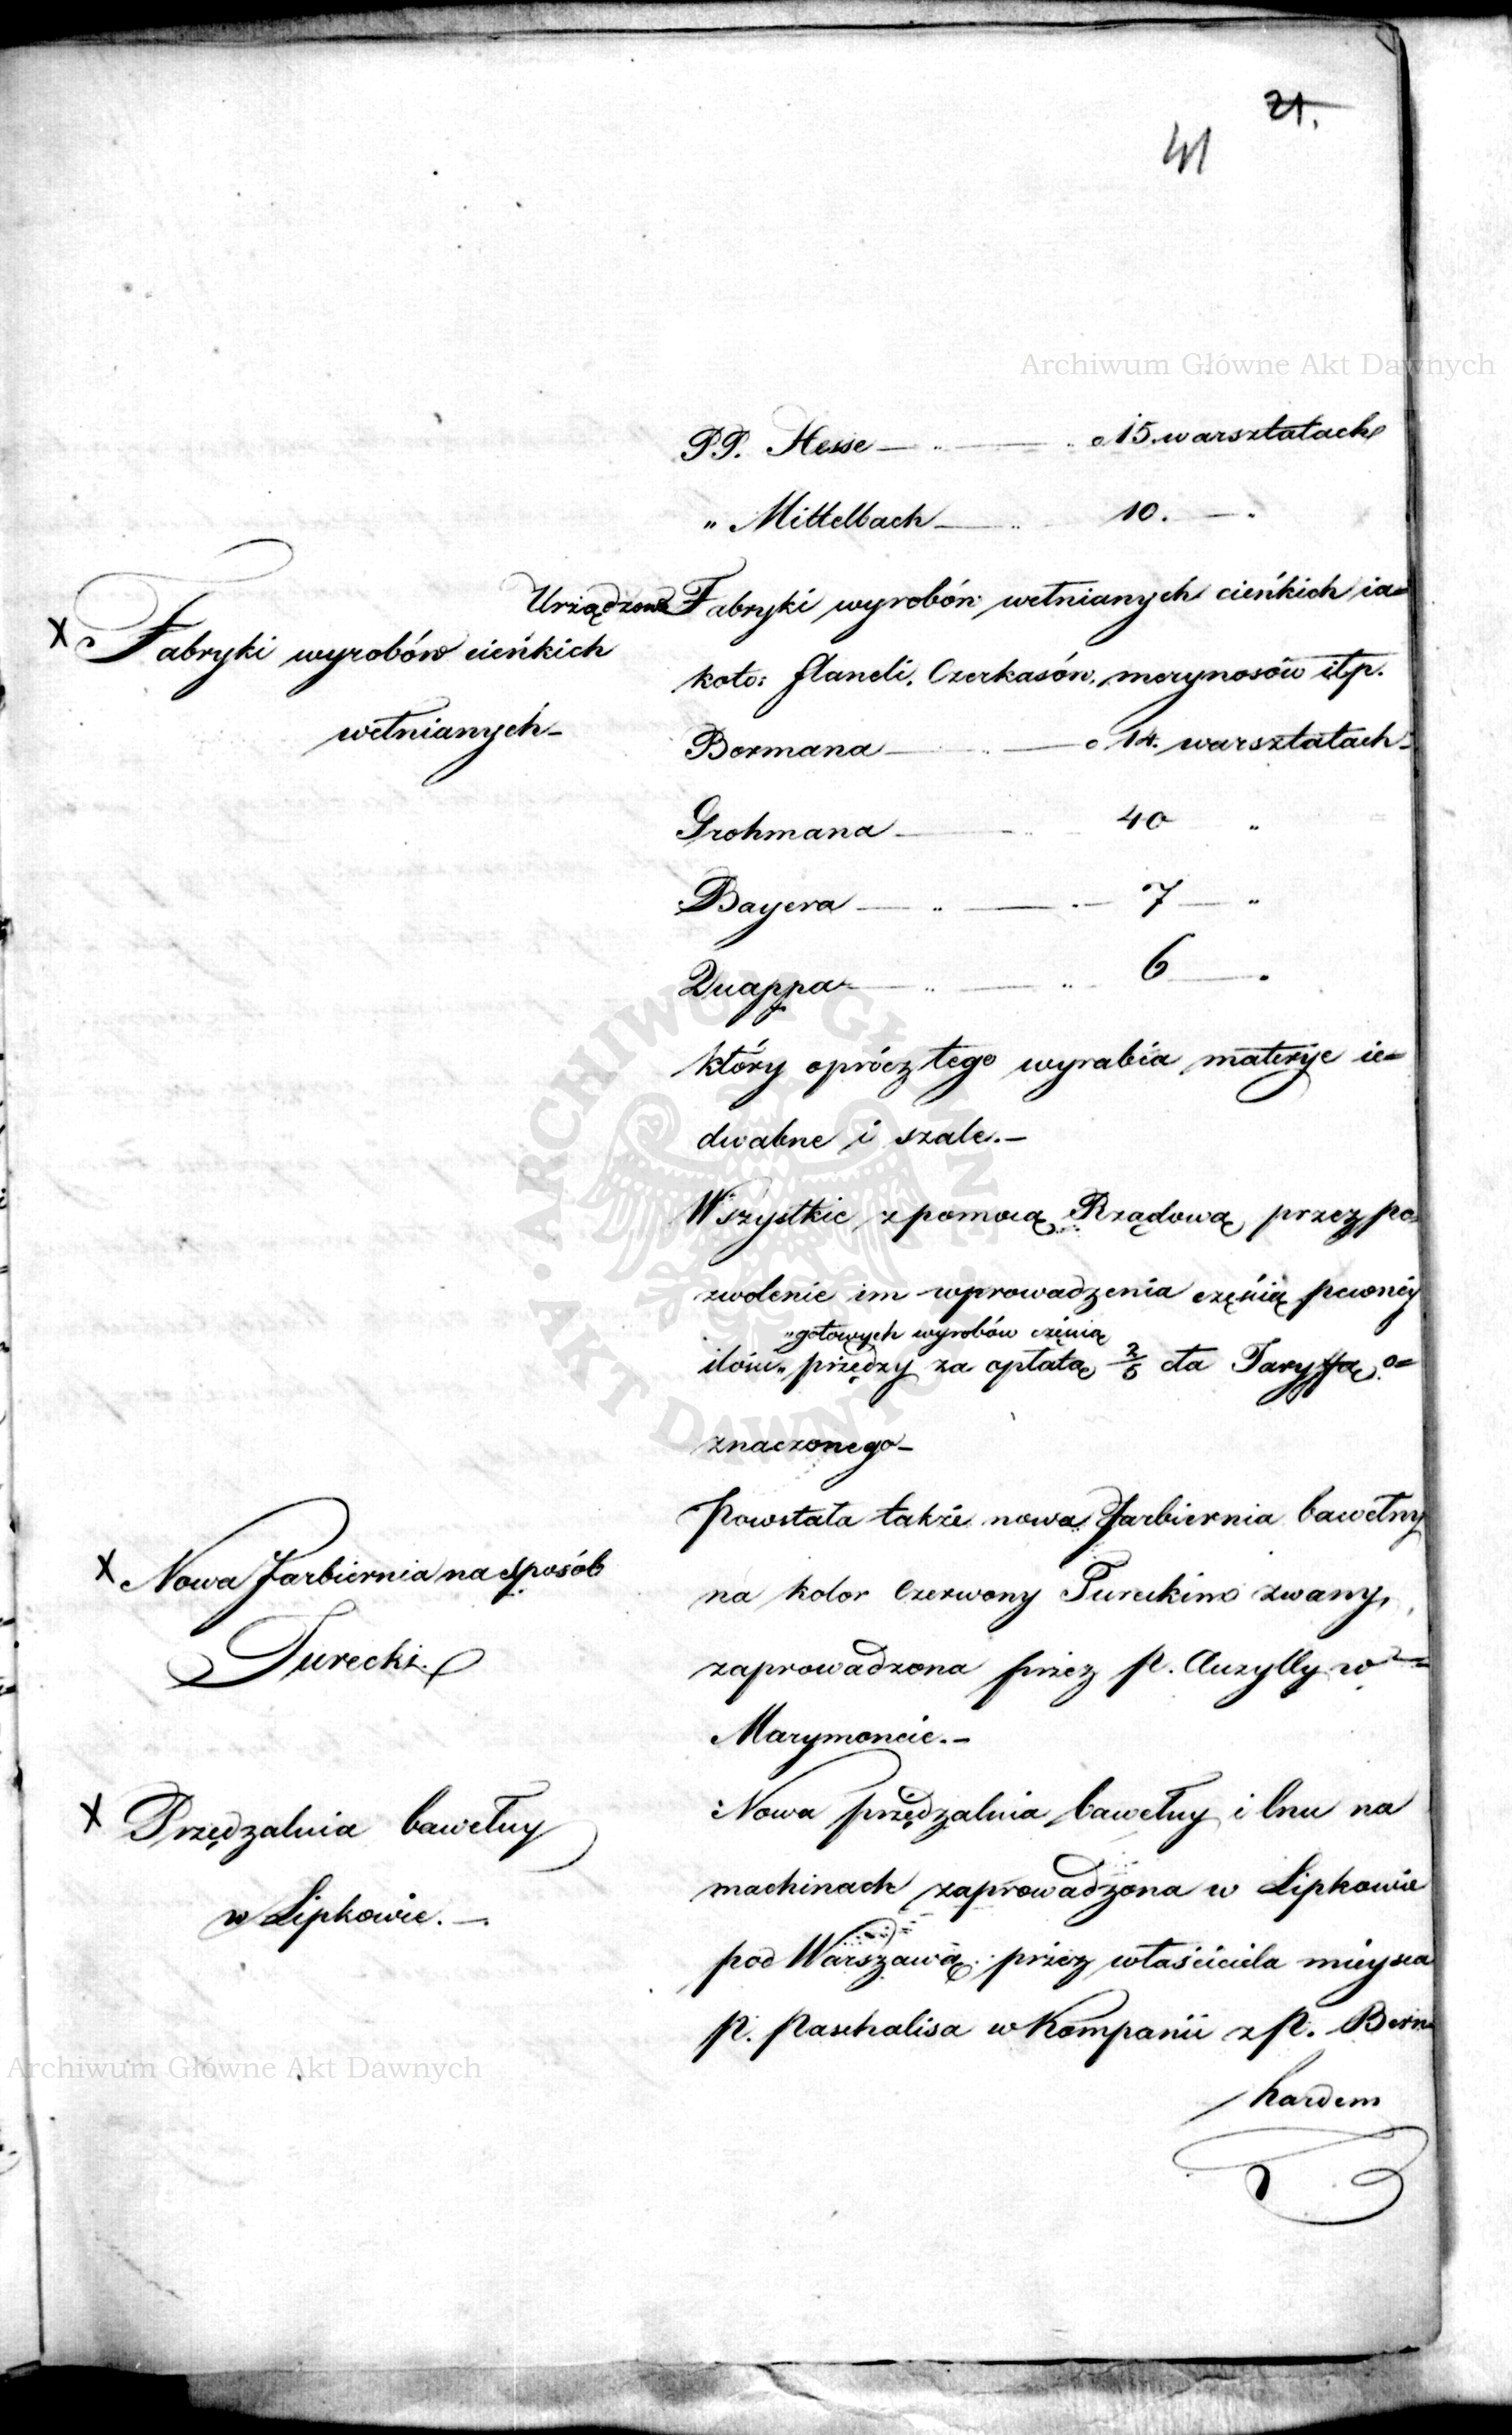 21.
41
Archiwum Główne Akt Dawnych
PP. Hesse — „ — „ o 15. warsztatach
„ Mittelbach — „ 10. — „
Urządzone Fabryki wyrobów wełnianych cieńkich ia=
X Fabryki wyrobów cieńkich
koto: flaneli, Czerkasów, merynosów itp.
wełnianych –
Bormana — „ — o 14. warsztatach –
Grohmana — „ — 40 „
Bayera — „ — „ — 7 — „
Quappa — „ — „ — 6 — „
który oprócz tego wyrabia materye ie=
dwabne i szale. –
Wszystkie z pomocą Rządową, przez po=
zwolenie im wprowadzenia częścią pewnéy
„gotowych wyrobów częścią
ilości „ przędzy za opłatą 2/5 cła Taryffą o=
znaczonego –
Powstała także nowa farbiernia bawełny
X Nowa Farbiernia na sposób
na kolor Czerwony Tureckim zwany,
Turecki.
zaprowadzona przez p. Auzylly w
Marymoncie. –
Nowa przędzalnia bawełny i lnu na
X Przędzalnia bawełny
machinach zaprowadzona w Lipkowie
w Lipkowie. –
pod Warszawą przez właściciela mieysca
P. Paschalisa w Kompanii z P. Bern=
Archiwum Główne Akt Dawnych
hardem
ARCHIWUM GŁÓWNE · AKT DAWNYCH ·